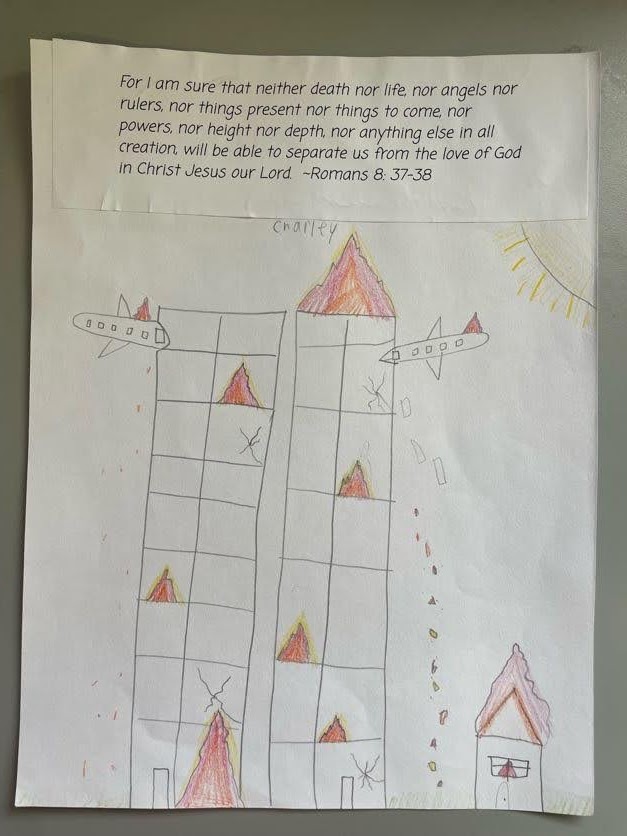 For I am sure that neither death nor life, nor angels nor
rulers, nor things present nor things to come, nor
powers, nor height nor depth, nor anything else in all
creation, will be able to separate us from the love of God
in Christ Jesus our Lord. ~Romans 8: 37-38
Charley